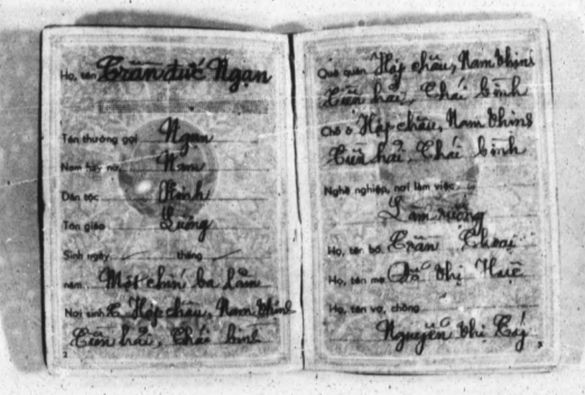 Họ, tên Trần đức Ngạn
Tên thường gọi Ngạn
Nam hay nữ Nam
Dân tộc Kinh
Tôn giáo Lương
Sinh ngày tháng
năm Một chín ba lăm
Nơi sinh Hợp châu, Nam thịnh
Tiền hải, Thái bình
2
Quê quán Hợp châu, Nam thịnh
Tiền hải, Thái bình
Chỗ ở Hợp châu, Nam thịnh
Tiền hải, Thái bình
Nghề nghiệp, nơi làm việc
Làm ruộng
Họ, tên bố Trần
Họ, tên mẹ thị Huệ
Họ, tên vợ, chồng
Nguyễn thị
3